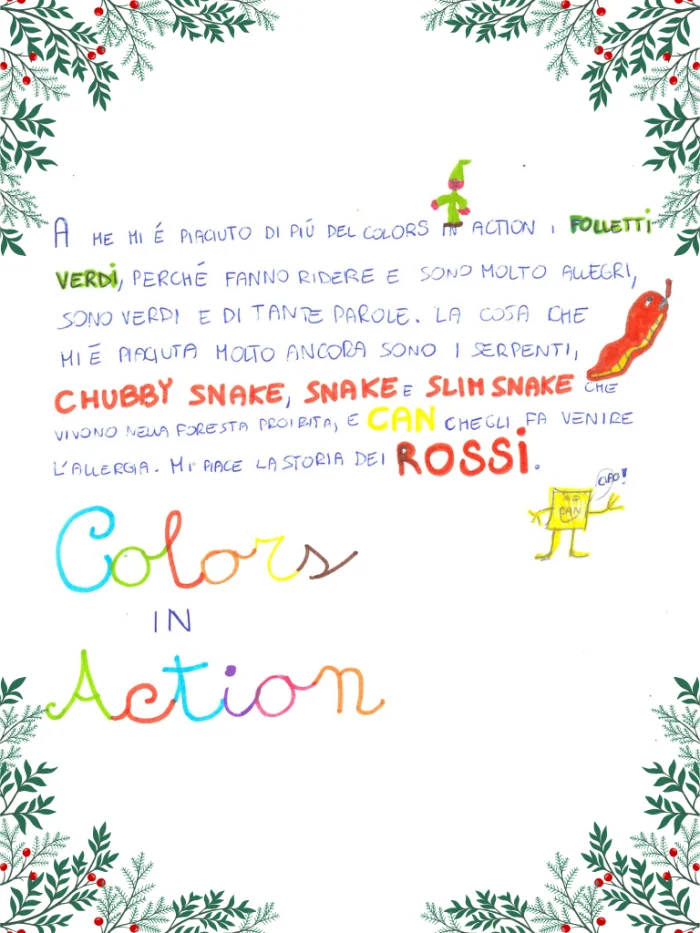 A ME MI É PIACIUTO DI PIÚ DEL COLORS IN ACTION I FOLLETTI
VERDI, PERCHÉ FANNO RIDERE E SONO MOLTO ALLEGRI,
SONO VERDI E DI TANTE PAROLE. LA COSA CHE
MI É PIACIUTA MOLTO ANCORA SONO I SERPENTI,
CHUBBY SNAKE, SNAKE E SLIM SNAKE CHE
VIVONO NELLA FORESTA PROIBITA, E CAN CHE GLI FA VENIRE
L'ALLERGIA. MI PIACE LA STORIA DEI ROSSI.
CIAO!
CAN
Colors
IN
Action